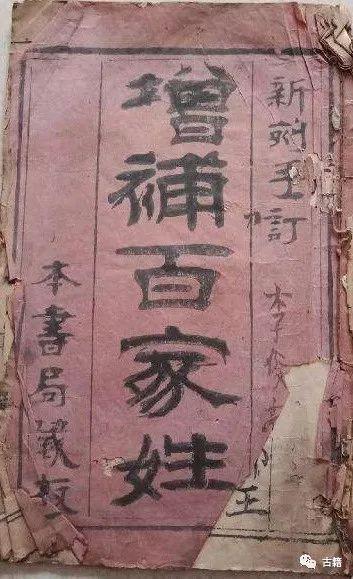 新刻訂
增補百家姓
本書局藏板
古籍